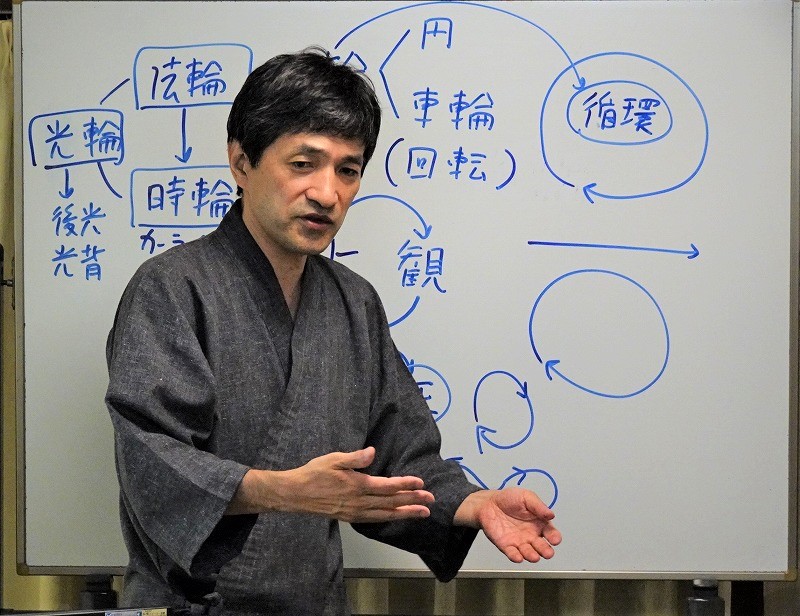 円
法輪
車輪
循環
光輪
(回転)
時輪
後光
光背
観